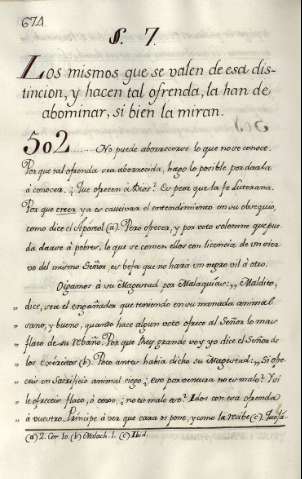 674
§. 7.
Los mismos que se valen de esa dis-
tincion, y hacen tal ofrenda, la han de
abominar, si bien la miran.
502....... No puede aborrecerse lo que no se conoce.
Para que tal ofrenda sea aborrecida, hago lo posible por darla
á conocer. ¿Que ofrecen á Dios? Es peor que la fe
Por que creer ya es cautivar el entendimiento en su obsequio,
como dice el Apostol (a). Pero ofrecer, y por voto solemne que pue-
da darse á pobres, lo que se comen ellos con licencia de un sier-
vo del mismo Señor, es befa que no haria un negro vil á otro.
Oigamos á su Magestad por Malaquias: „ Maldito,
„ dice, sea el engañador que teniendo en su manada animal
„ sano, y bueno, quando hace algun voto ofrece al Señor lo mas
„ flaco de su rebaño. Porque Rey grande soy yo dice el Señor de
„ los exércitos (b). Poco antes habia dicho su Magestad: „ Si ofre-
„ ceis en Sacrificio animal ciego ¿eso por ventura no es malo? Y si
„ le ofreceis flaco, ó coxo, ¿no es malo eso? Idos con esa ofrenda
„ á vuestro Principe á ver que cara os pone, y como la recibe (c).
(a) 2. Cor. 10. (b) Malach. 1. (c) Ibid.